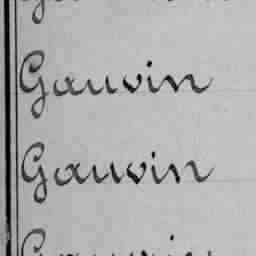 Gauvin
Gauvin